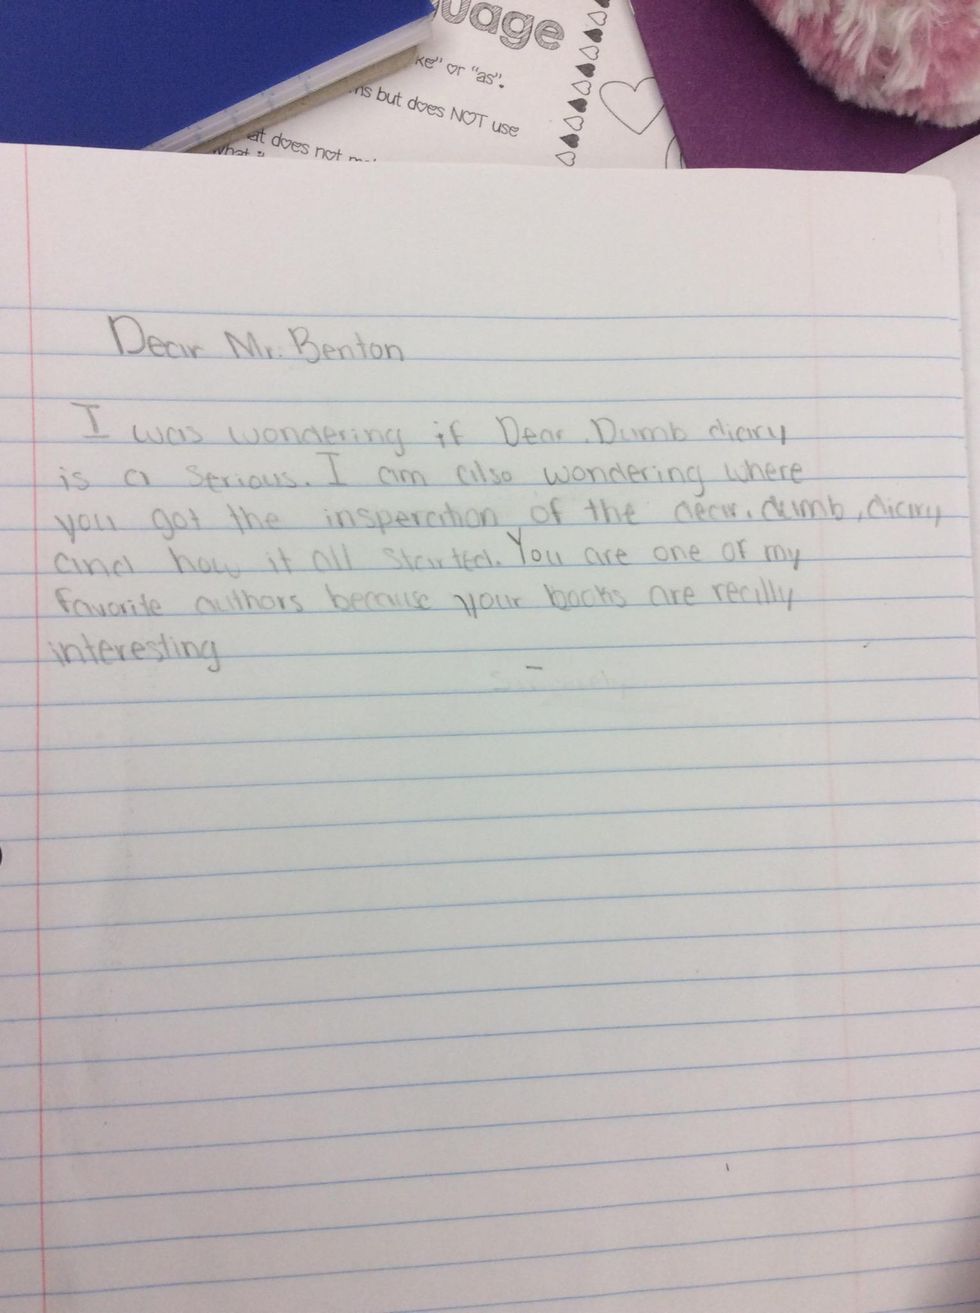 uage
ke" or "as".
ns but does NOT use
at does not
Dear Mr. Benton
I was wondering if Dear. Dumb diary
is a Serious. I am also wondering where
you got the insperation of the dear. dumb, diary
and how it all Started. You are one of my
favorite authors because your books are really
interesting